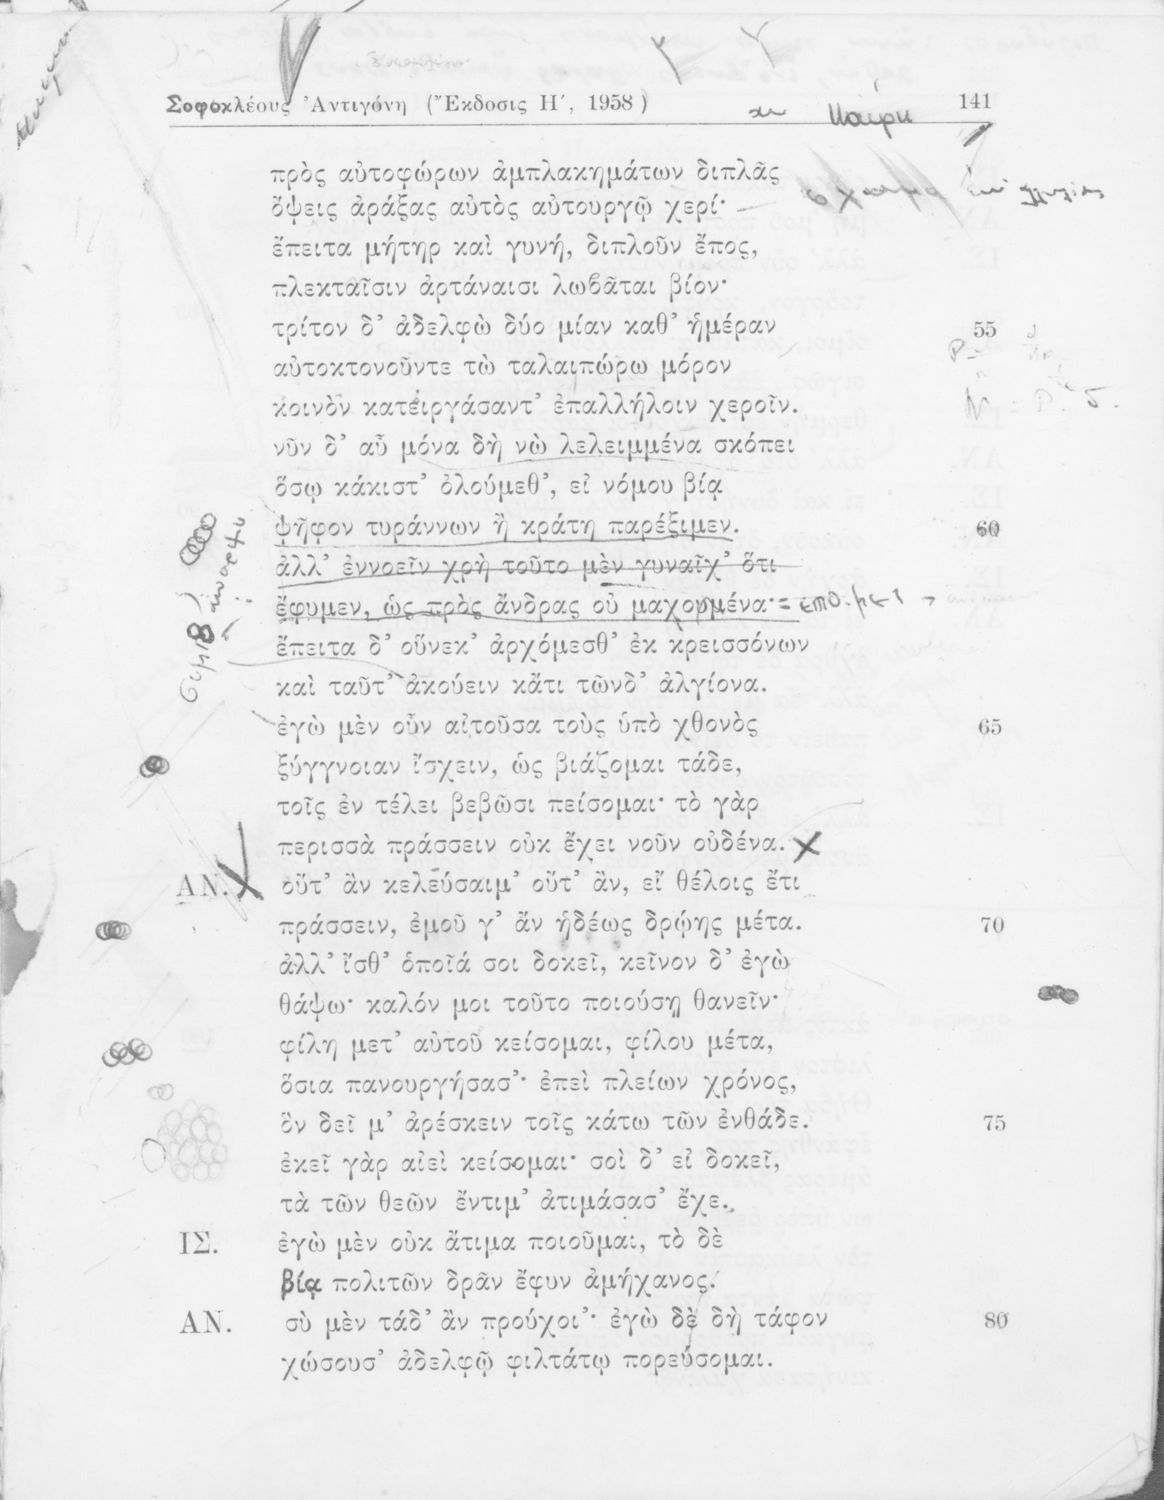 Σοφοκλέους Ἀντιγόνη (Ἔκδοσις Η΄, 1958)
141
πρὸς αὐτοφώρων ἀμπλακημάτων διπλᾶς
ὄψεις ἀράξας αὐτὸς αὐτουργῷ χερί·
ἔπειτα μήτηρ καὶ γυνή, διπλοῦν ἔπος,
πλεκταῖσιν ἀρτάναισι λωβᾶται βίον·
τρίτον δ᾽ ἀδελφὼ δύο μίαν καθ᾽ ἡμέραν 55
αὐτοκτονοῦντε τὼ ταλαιπώρω μόρον
κοινὸν κατειργάσαντ᾽ ἐπαλλήλοιν χεροῖν.
νῦν δ᾽ αὖ μόνα δὴ νὼ λελειμμένα σκόπει
ὅσῳ κάκιστ᾽ ὀλούμεθ᾽, εἰ νόμου βίᾳ
ψῆφον τυράννων ἢ κράτη παρέξιμεν. 60
ἀλλ᾽ ἐννοεῖν χρὴ τοῦτο μὲν γυναῖχ᾽ ὅτι
ἔφυμεν, ὡς πρὸς ἄνδρας οὐ μαχουμένα·
ἔπειτα δ᾽ οὕνεκ᾽ ἀρχόμεσθ᾽ ἐκ κρεισσόνων
καὶ ταῦτ᾽ ἀκούειν κἄτι τῶνδ᾽ ἀλγίονα.
ἐγὼ μὲν οὖν αἰτοῦσα τοὺς ὑπὸ χθονὸς 65
ξύγγνοιαν ἴσχειν, ὡς βιάζομαι τάδε,
τοῖς ἐν τέλει βεβῶσι πείσομαι· τὸ γὰρ
περισσὰ πράσσειν οὐκ ἔχει νοῦν οὐδένα.
ΑΝ. οὔτ᾽ ἂν κελεύσαιμ᾽ οὔτ᾽ ἄν, εἴ θέλοις ἔτι
πράσσειν, ἐμοῦ γ᾽ ἂν ἡδέως δρῴης μέτα. 70
ἀλλ᾽ ἴσθ᾽ ὁποῖά σοι δοκεῖ, κεῖνον δ᾽ ἐγὼ
θάψω· καλόν μοι τοῦτο ποιούσῃ θανεῖν·
φίλη μετ᾽ αὐτοῦ κείσομαι, φίλου μέτα,
ὅσια πανουργήσασ᾽· ἐπεὶ πλείων χρόνος,
ὃν δεῖ μ᾽ ἀρέσκειν τοῖς κάτω τῶν ἐνθάδε. 75
ἐκεῖ γὰρ αἰεὶ κείσομαι· σοὶ δ᾽ εἰ δοκεῖ,
τὰ τῶν θεῶν ἔντιμ᾽ ἀτιμάσασ᾽ ἔχε.
ΙΣ. ἐγὼ μὲν οὐκ ἄτιμα ποιοῦμαι, τὸ δὲ
βίᾳ πολιτῶν δρᾶν ἔφυν ἀμήχανος.
ΑΝ. σὺ μὲν τάδ᾽ ἂν προύχοι᾽· ἐγὼ δὲ δὴ τάφον 80
χώσουσ᾽ ἀδελφῷ φιλτάτῳ πορεύσομαι.